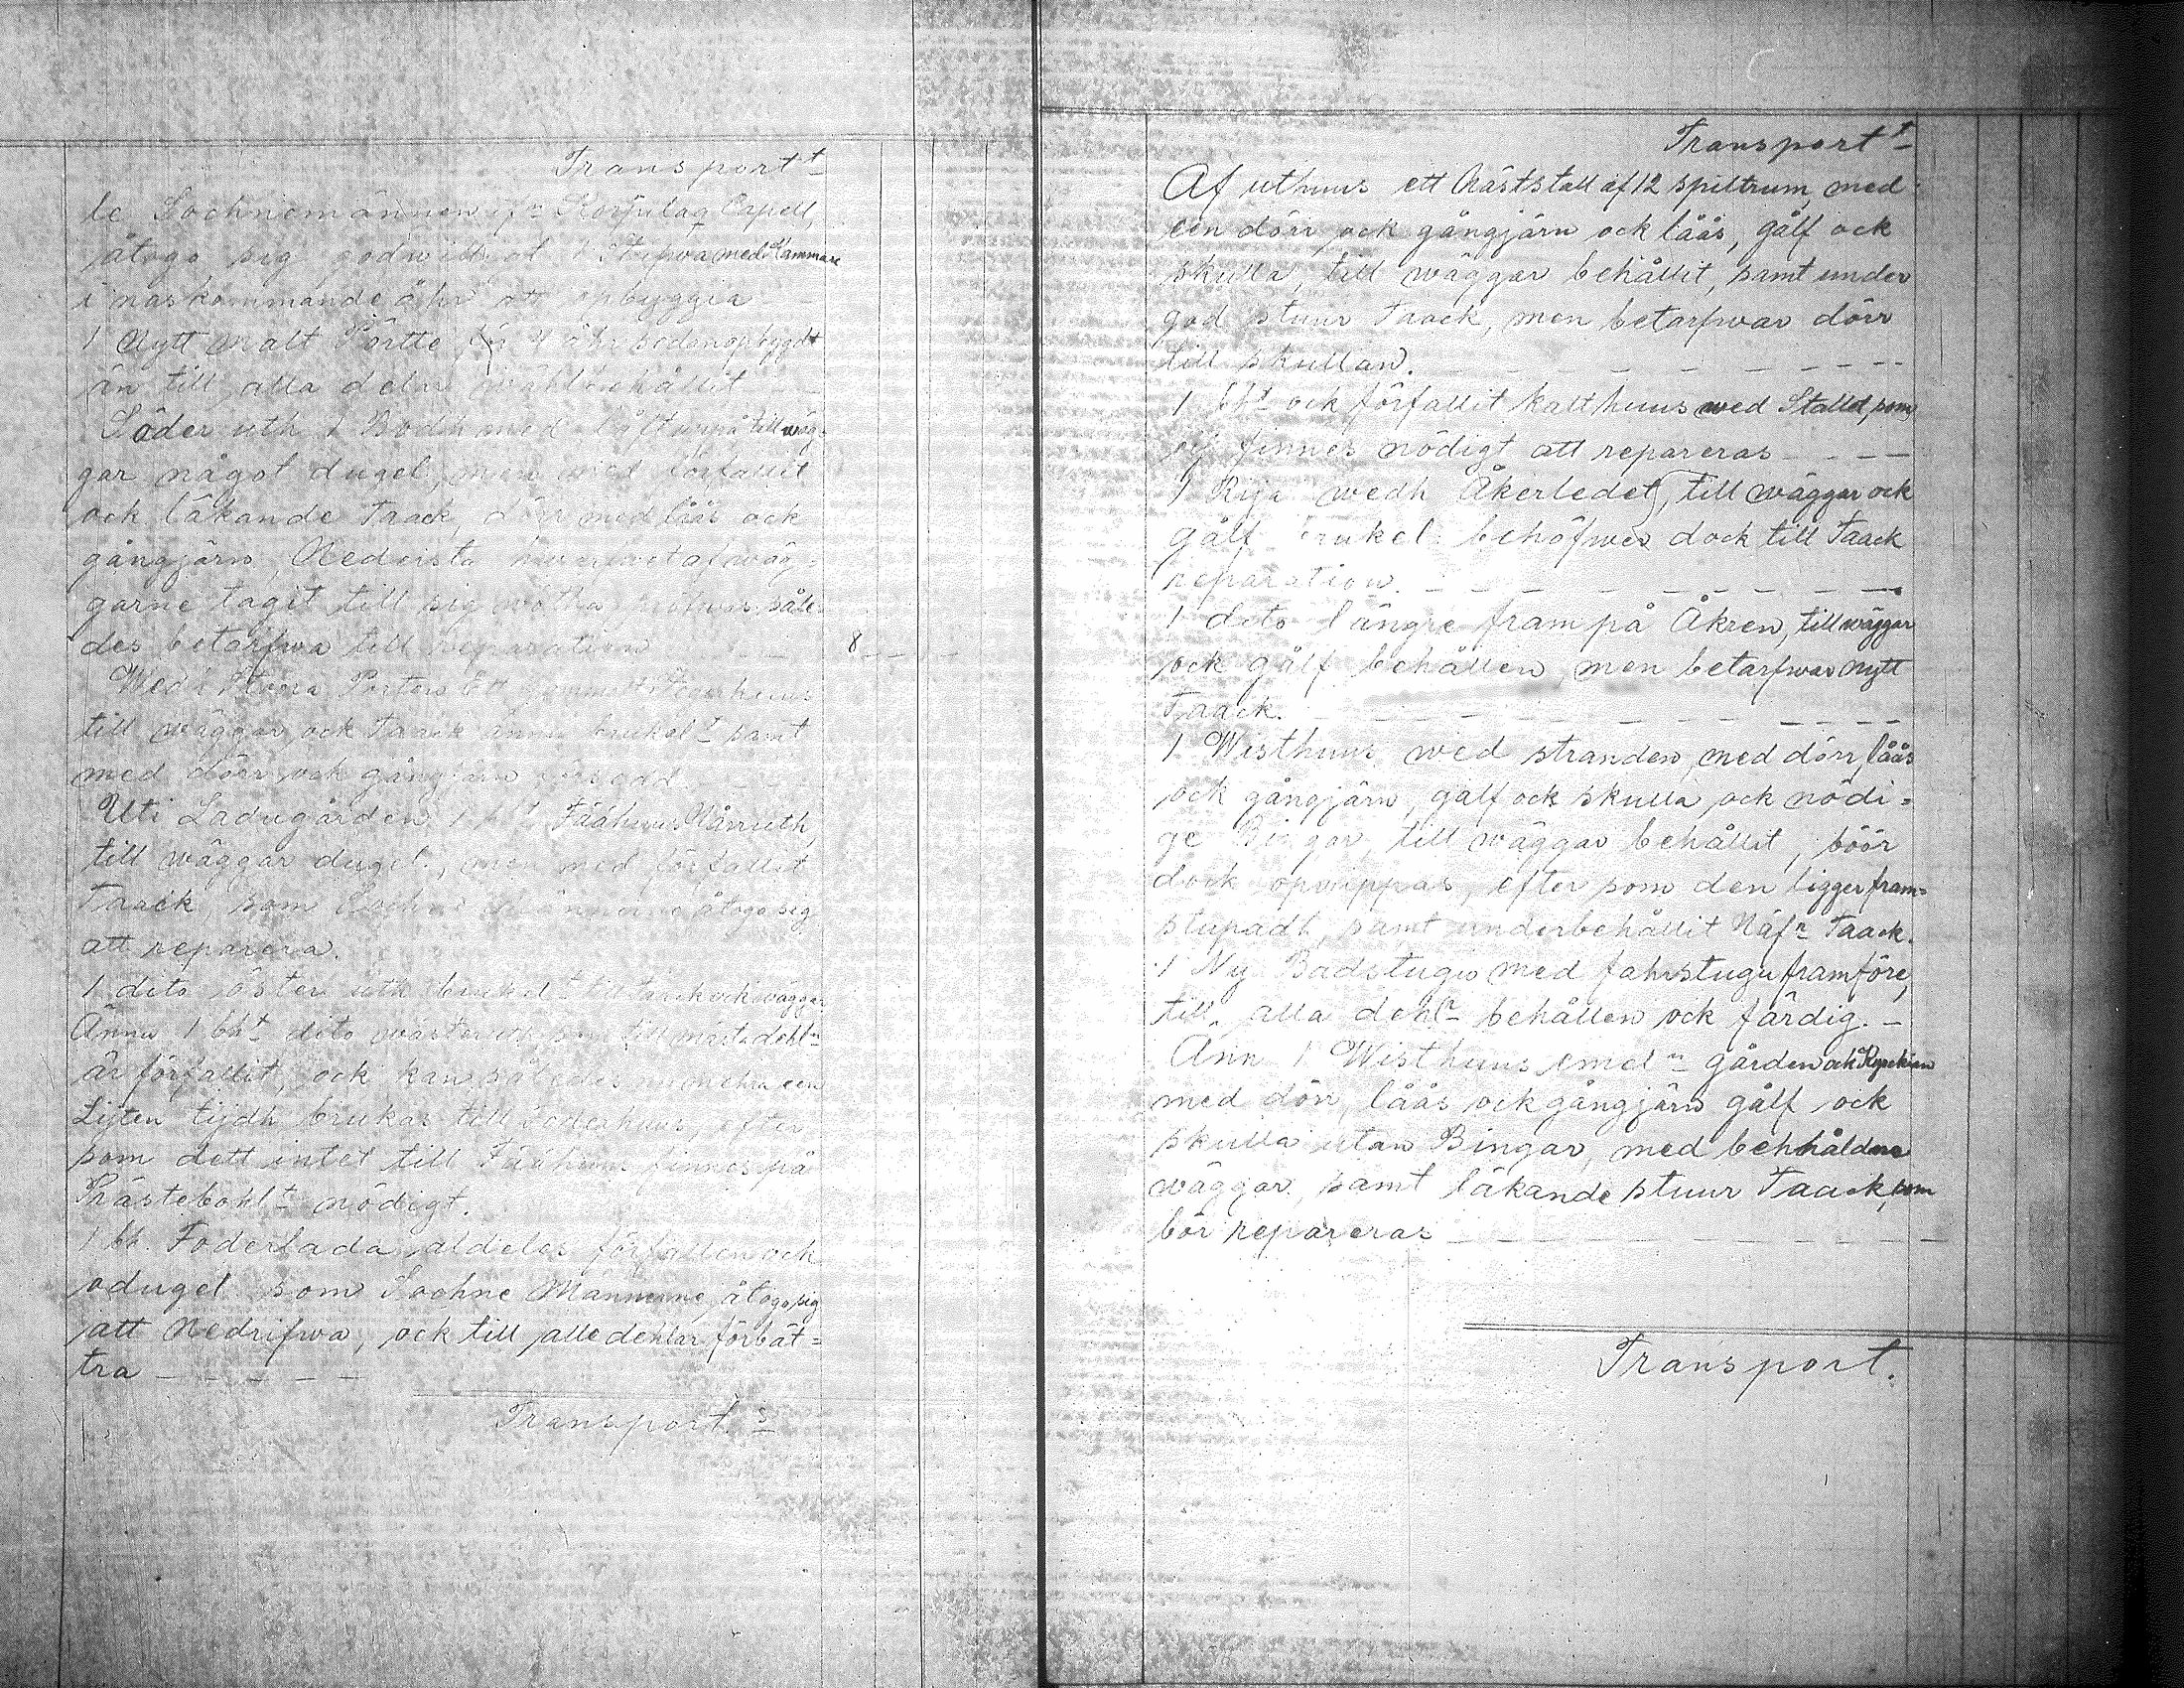 Transportt
le Sochnemännen if:n Korpulaq Capell,
åtogo sig godwill:t 1 Stufwa med Kammare
i näskommande åhr att opbyggia
1 Nytt Malt Pörtte för 4 åhr sedan opbygdt
än till alla delar wähl behållit
Söder uth 1 Bodh med låft uppå till wäg-
gar något dugel, men med förfallit
ock läkande Taack, dörr med låås ock
gångjärn, Nedersta hwarfwet af wäg-
garne tagit till sig rötha, såle-
des betarfwa till reparation 8 - - -
Wed Stoora Porten Ett gammalt
till wäggar ock Taack ännu brukel:t samt
med dörr ock gångjärn
Uti Ladugården 1 b:t Fäähuus Nårruth,
till wäggar dugel., men med förfallit
Taack, som Sochne Männerne åtogo sig
att reparera.
1 dito öster uth brukel:t till Taack ock wäggar
Ännu 1 bh:t dito wäster uth, som till mästa dehl:n
är förfallit, ock kan således en
Lijten tijdh brukas till foderhuus, efter
som dett intet till Fäähuus finnes på
Prästebohl:t nödigt.
1 bh. Foderlada aldeles förfallen ock
odugel som Sochne Männerne åtogo sig
att Nedrifwa, ock till alle dehlar förbät=
tra - - - - -
Transport:s
Transport:t
Af uthuus ett Häststall af 12 spiltrum, med
een dörr, ock gångjärn ock låås, gålf ock
skulla, till wäggar behållit, samt under
god stuur Taack, men betarfwar dörr
till skullan. - - - - - - - -
1 bh:t ock förfallit kalthuus wed Stallet, som
ej finnes nödigt att repareras - - - -
1 Rija wedh Åkerledet, till wäggar ock
gålf brukel: behöfwer dock till Taack
reparation. - - - - - - - -
1 dito längre fram på Åkren, till wäggar
ock gålf behållen, men betarfwar nytt
Taack. - - - - - - - - -
1 Wisthuus wed stranden, med dörr, låås
ock gångjärn, gålf ock skulla, ock nödi=
ge Bingar, till wäggar behållit, böör
dock opwippas, efter som den ligger fram=
stupadh, samt under behållit Näf:r Taack.
1 Ny Badstugu med fahrstugu framföre,
till alla dehl:r behållen ock färdig. -
Änn 1 Wisthuus emel:n gården ock Kyrckian
med dörr, låås ock gångjärn gålf ock
skulla utan Bingar, med behhåldne
wäggar, samt läkande stuur Taack, som
bör repareras - - - - - - - -
Transport.